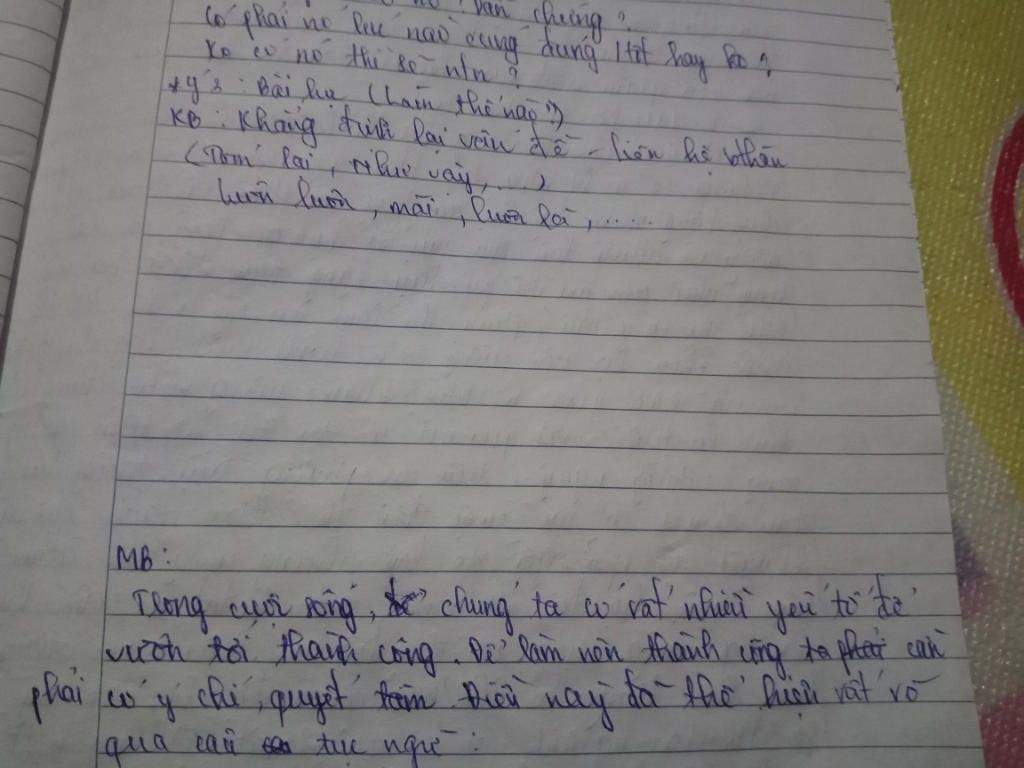 văn chương?
Có phải nó lúc nào cũng đúng / tốt hay ko?
Ko có nó thì sẽ ntn?
+ Ý 3: Bài học (Làm thế nào?)
KB: Khẳng định lại vấn đề - liên hệ bthân
(Tóm lại, Như vậy, ...)
luôn luôn, mãi, luôn là, .....
MB:
Trong cuộc sống, chúng ta có rất nhiều yếu tố để
vươn tới thành công. Để làm nên thành công ta cần
phải có ý chí, quyết tâm. Điều này đã thể hiện rất rõ
qua câu tục ngữ: